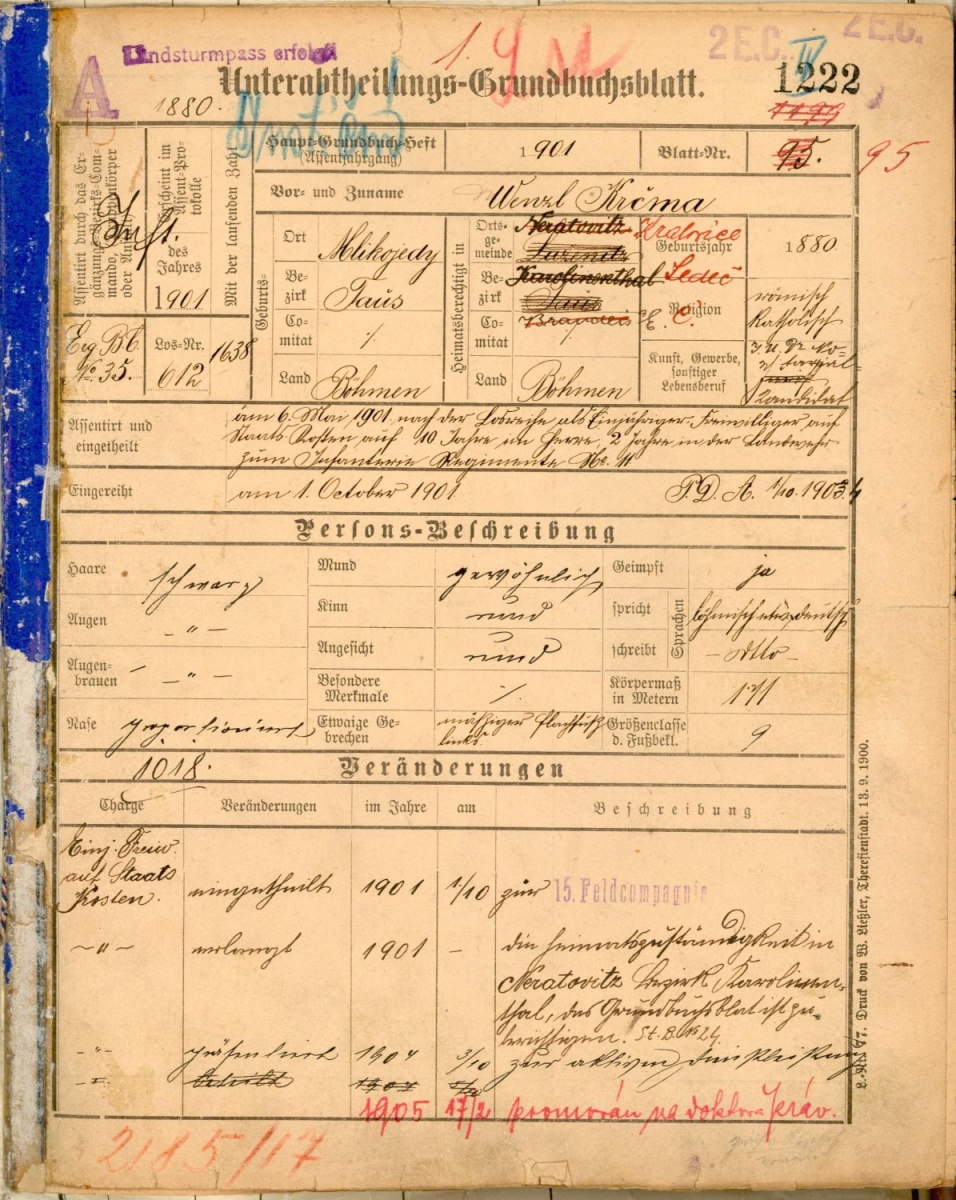 A
Landsturmpass erfolgt
1.
2 E.C. IV
2 E.C.
Unterabtheilungs-Grundbuchsblatt.
1222
1880.
1199
Assentirt durch das Ergänzungs-Bezirks-Commando,
oder
Inft.
Erg. Bk
No. 35.
Erscheint im Assent-Protokolle
des Jahres
1901
Los-Nr.
612
Mit der laufenden Zahl
1638
Haupt-Grundbuch-Heft
(Assentjahrgang)
1901
Blatt-Nr.
95.
95
Vor- und Zuname
Wenzl Krčma
Geburts-
Ort
Mlikojedy
Bezirk
Taus
Comitat
·/.
Land
Böhmen
Heimatsberechtigt in
Ortsgemeinde
Neratovitz
Kralovice
Bezirk
Karolinenthal
Ledeč
Taus
Comitat
Land
Böhmen
Geburtsjahr
1880
Religion
römisch
Katholisch
Kunst, Gewerbe,
sonstiger
Lebensberuf
Kandidat
Assentirt und
eingetheilt
am 6. Mai 1901 nach der Losreihe als Einjähriger-Freiwilliger auf
Staats Kosten auf 10 Jahre im Heere, 2 Jahre in der Landwehr
zum Infanterie Regimente No. 11
Eingereiht
am 1. October 1901
P. D. A. 1/10. 1904
Persons-Beschreibung
Haare
schwarz
Mund
gewöhnlich
Geimpft
ja
Augen
— " —
Kinn
rund
spricht
Sprachen
böhmisch etwas deutsch
Augenbrauen
— " —
Angesicht
rund
schreibt
— dtto —
Besondere
Merkmale
·/.
Körpermaß
in Metern
1·71
Nase
proportionirt
Etwaige Gebrechen
mässiger Plattfuß
links
Größenclasse
d. Fußbekl.
9
1018.
Veränderungen
Charge
Veränderungen
im Jahre
am
Beschreibung
Einj. Freiw.
auf Staats
Kosten.
eingetheilt
1901
1/10
zur 15. Feldcompagnie
— " —
erlangt
1901
—
die Heimatszuständigkeit in
Neratovitz Bezirk Karolinen-
thal, das Grundbuchsblat ist zu
berichtigen.
- " -
präsentiert
1904
3/10
zur aktiven Dienstleistung
1905 17/2 promován na doktora práv.
2185/17
L.-Nr. 77. Druck von W. Ließler, Theresienstadt. 13. 9. 1900.